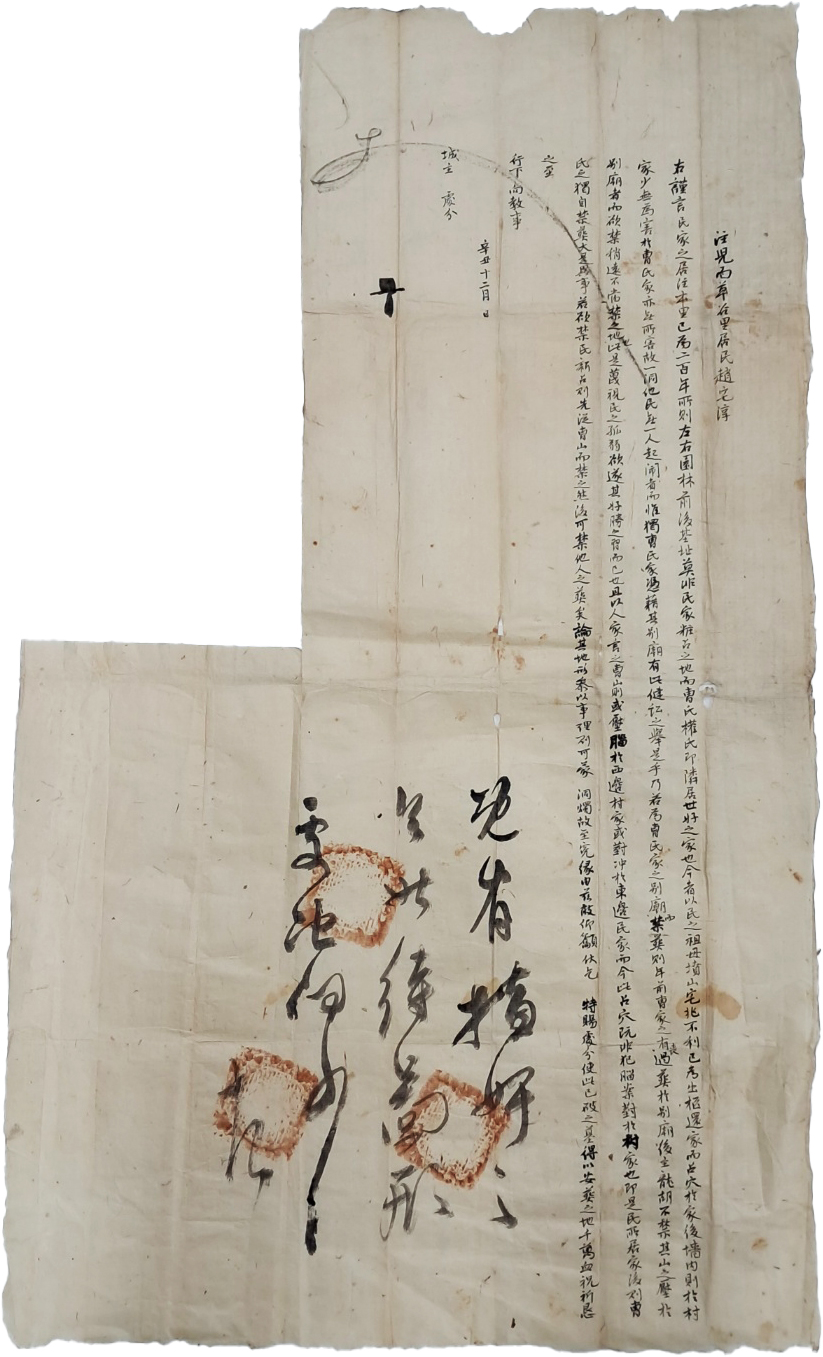 注兒面草谷里居民趙宅淳
右謹言民家之居住本里已爲二百年所則左右園林前後基址莫非民家粧占之地而曺氏權氏卽隣居世好之家也今者以民之祖母墳山宅兆不利已爲出柩還家而占穴於家後墻內則於村
家少無爲害於曺氏家亦無所害故一洞他民無一人起鬧者而惟獨曺氏家憑藉其別廟有此健訟之擧是乎乃若爲曺氏家之別廟而禁葬則年前曺家之有喪過葬於別廟後主龍胡不禁其山之壓於
別廟者而欲禁稍遠不當禁之地也此是蔑視民之孤弱欲遂其好勝之習而已也且以人家言之曺山則或壓腦於西邊村家或對冲於東邊民家而今此占穴旣非犯腦業對於村家也卽是民所居家後則曺
氏之獨自禁葬大是異事若欲禁民新占則先從曺山而禁之然後可禁他人之葬矣論其地形參以事理則可蒙 洞燭故至冤緣由玆敢仰籲伏乞 特賜處分使此已破之墓得以安葬之地千萬血祝祈恳
之至
行下向敎事
城主 處分
辛丑十二月 日
旣有
此 待圖形
處 向事